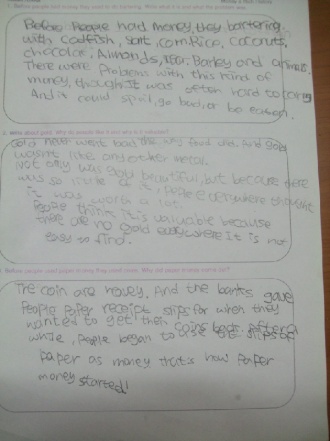 1. Before people used money they used to do bartering. Write what it is and what the problem was.
Before People had Money, they bartering.
with codfish, salt, corn, Rica, coconuts,
chocolate, Almonds, Tea, Barley and animals.
There were problems with this kind of
money, though. It was often hard to carry
And it could spoil, go bad, or be eaten.
2. Write about gold. Why do people like it and why is it valuable?
Gold never went bad the way food did. And gold
wasn't like any other metal.
Not only was gold beautiful, but because there
was so little of it, people everywhere thought
it was worth a lot.
People think it is valuable because
there are no gold everywhere It is not
easy to find.
Before people used paper money they used coins. Why did paper money come up?
The coin are heavy. And the banks gave
People Paper receipt slips for when they
wanted to get their coins back. after a
while, People began to use the slips of
paper as money that's how Paper
money started!